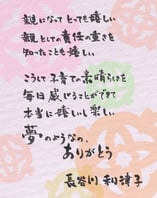 親になってとても嬉しい
親としての責任の重さを
知ったことも嬉しい
こうして子育ての素晴らしさを
毎日感じることができて
本当に嬉しいし楽しい
夢のようなの、
ありがとう
長谷川 利津子